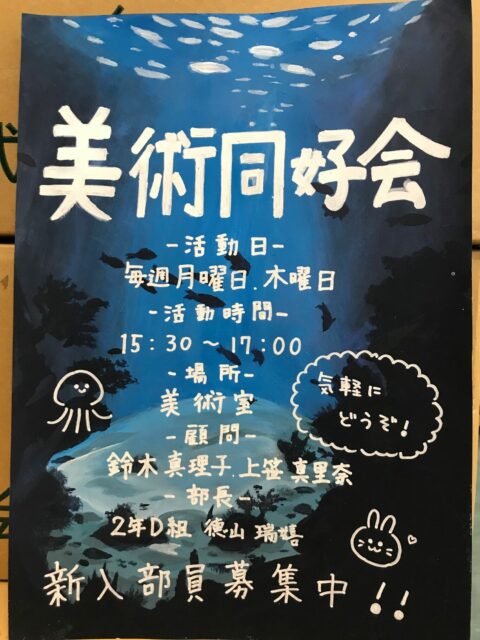 美術同好会
-活動日-
毎週月曜日.木曜日
-活動時間-
15:30～17:00
-場所-
美術室
気軽に
どうぞ!
-顧問-
鈴木真理子.上笹真里奈
-部長-
2年D組 徳山瑞嬉
新入部員募集中!!